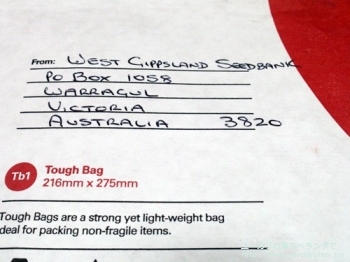 From: WEST GIPPSLAND SEEDBANK
PO BOX 1058
WARRAGUL
VICTORIA
AUSTRALIA 3820
Tb1
Tough Bag
216mm x 275mm
Tough Bags are a strong yet light-weight bag
deal for packing non-fragile items.